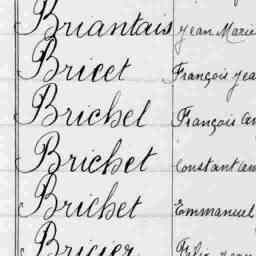 Briantais Jean Marie
Bricet François Jea
Brichel François An
Brichet Constant Am
Brichet Emmanuel
Bricier Félix Jean